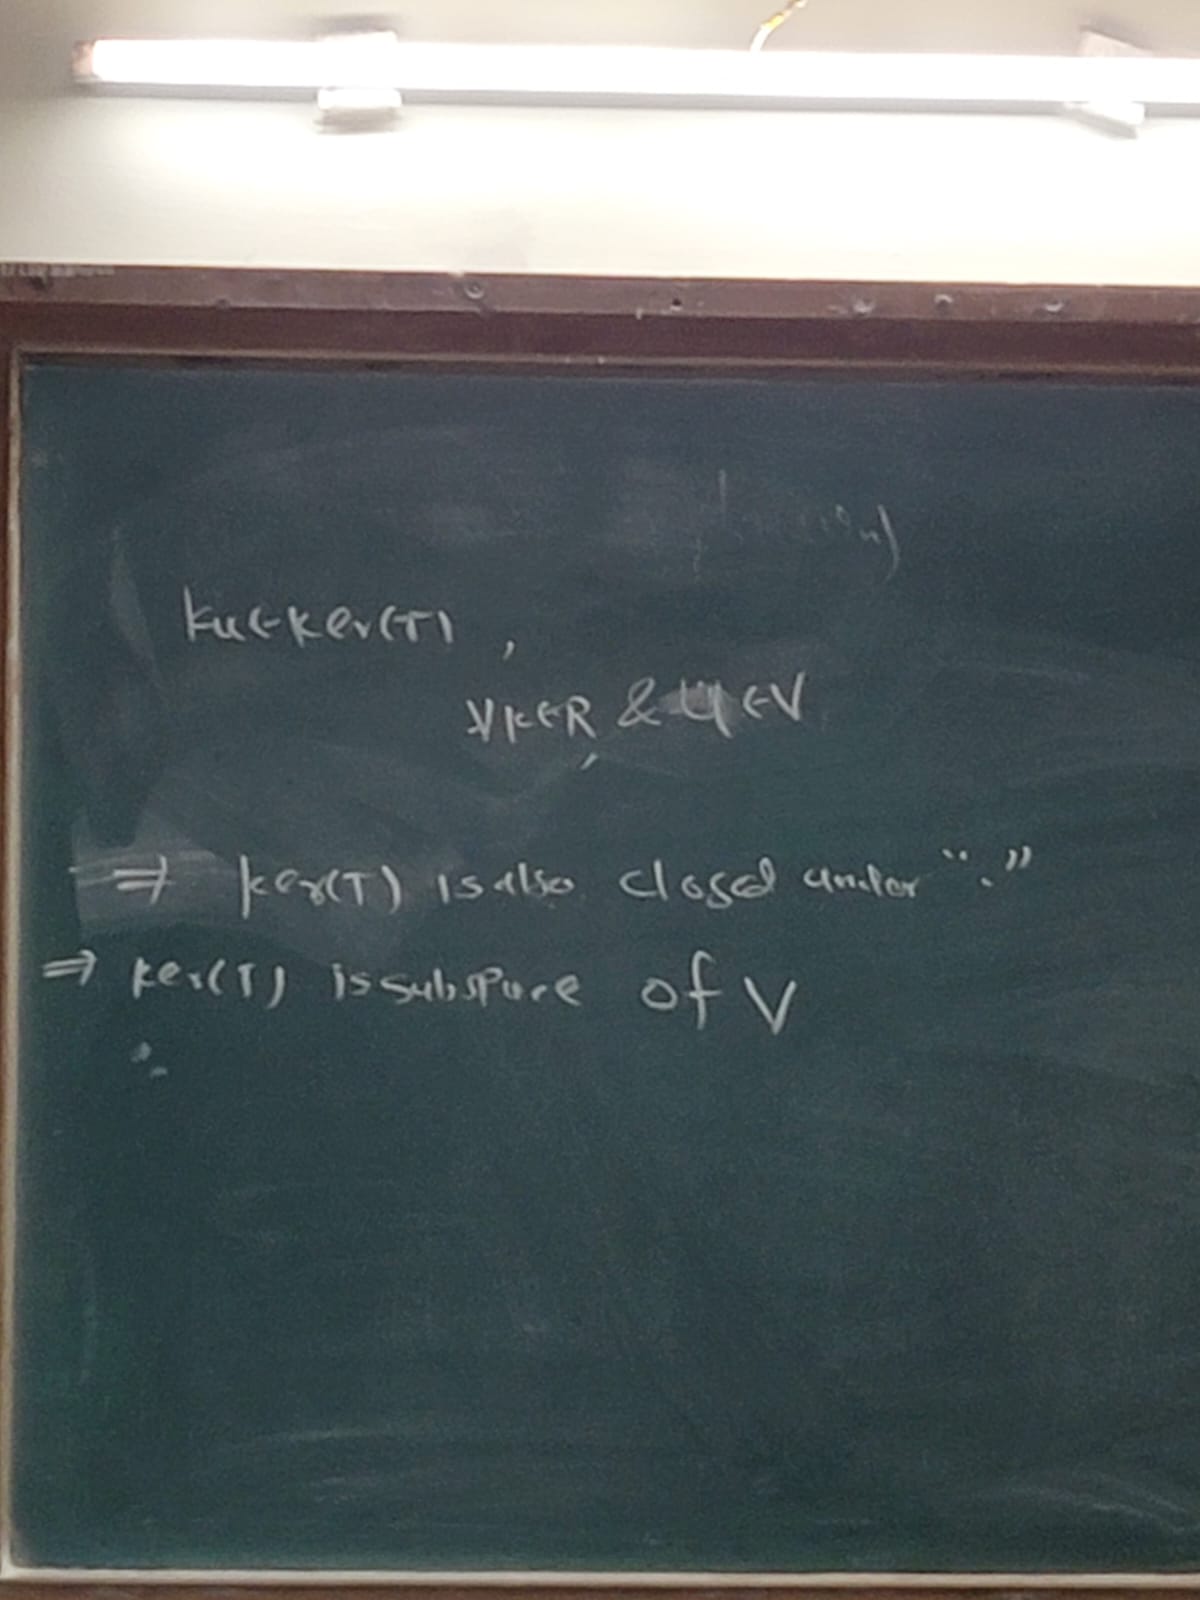 ku∈ker(T) ,
∀k∈R & u∈V
⇒ ker(T) is also closed under “.”
⇒ ker(T) is subspace of V